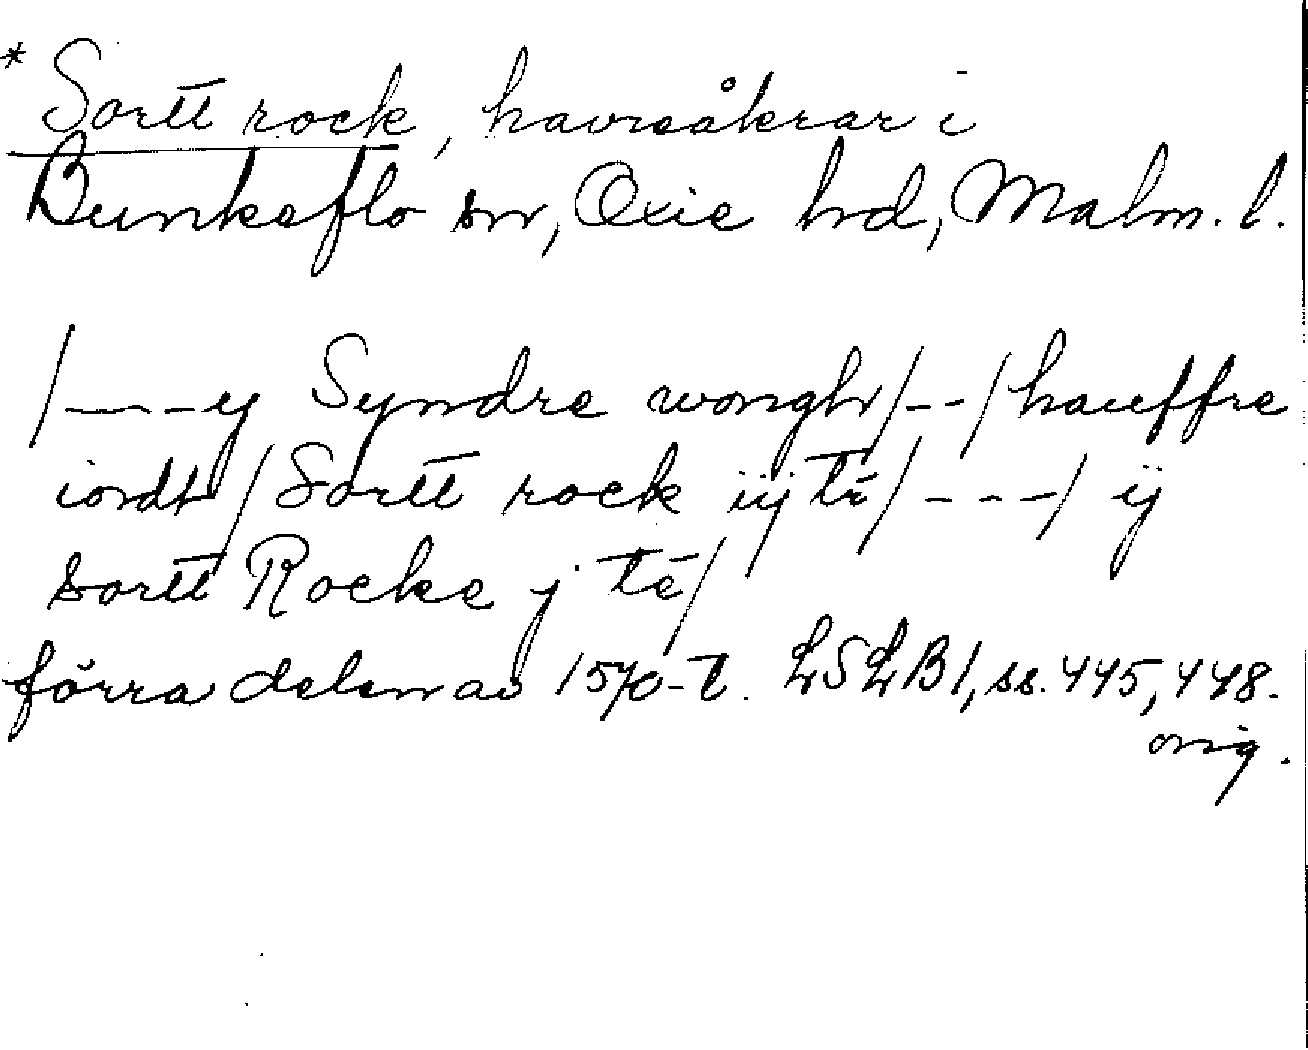 * Sortt rock, havreåkrar i
Bunkeflo sn, Oxie hd, Malm. l.
/----y Syndre wongh/--/hauffre
iordh/Sortt rock iij tr̄/----/ ij
sortt Rocke j tē/
förra delen av 1570-t. LSLB1, ss. 445, 448.
orig.